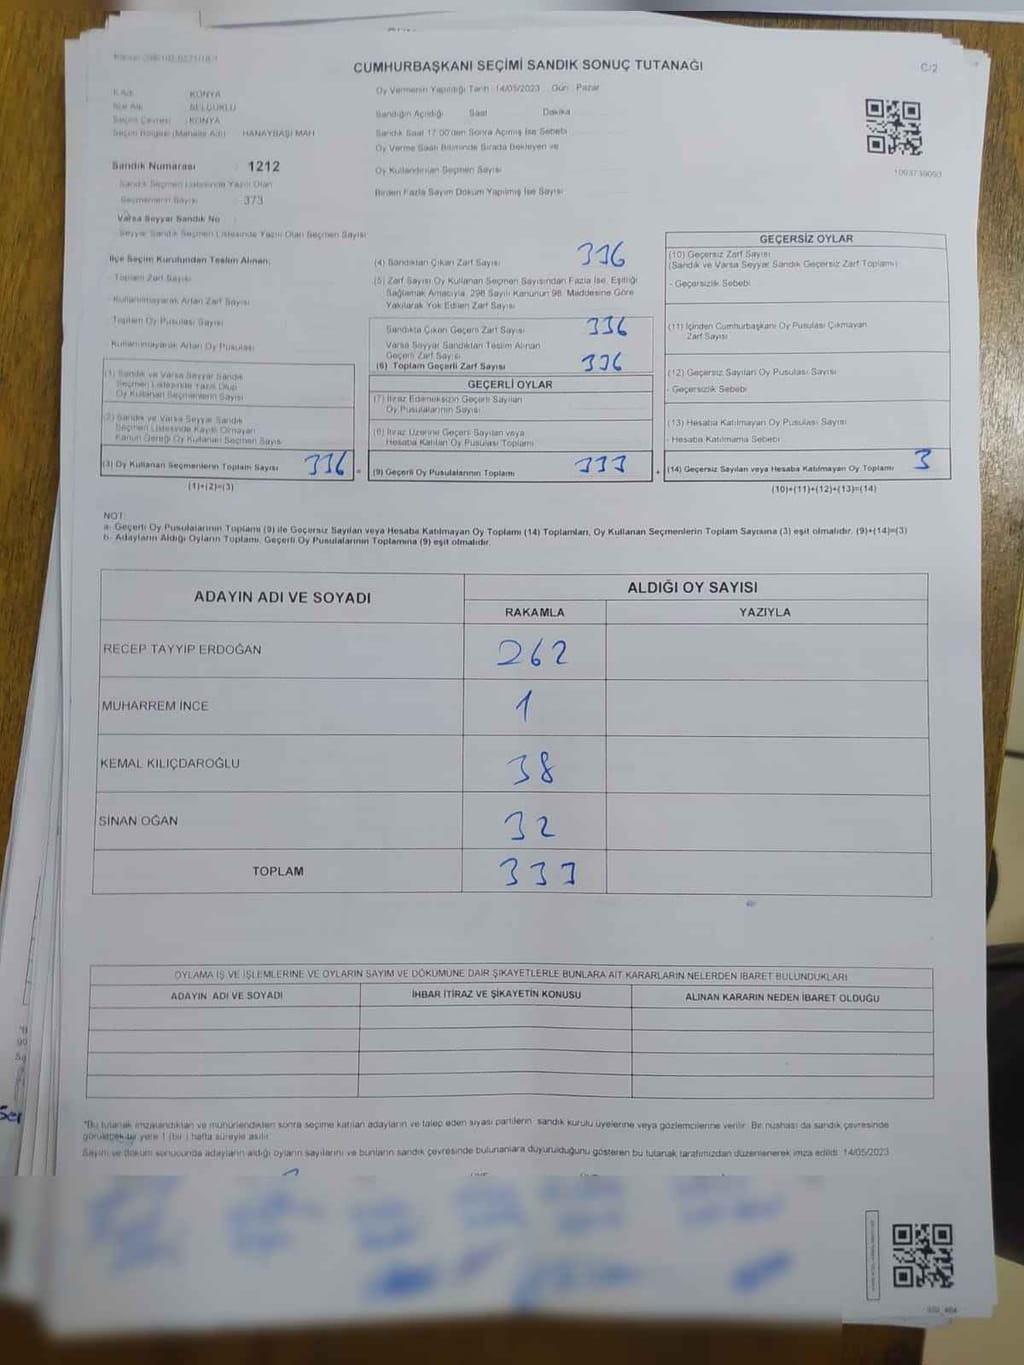 CUMHURBAŞKANI SEÇİMİ SANDIK SONUÇ TUTANAĞI
C/2
Oy Vermenin Yapıldığı Tarih 14/05/2023 Gün Pazar
İl Adı KONYA
İlçe Adı SELÇUKLU
Seçim Çevresi KONYA
Seçim Bölgesi (Mahalle Adı) HANAYBAŞI MAH
Sandığın Açıldığı Saat Dakika
Sandık Saat 17:00'den Sonra Açılmış İse Sebebi
Oy Verme Saati Bitiminde Sırada Bekleyen ve
Oy Kullandırılan Seçmen Sayısı
Birden Fazla Sayım Döküm Yapılmış İse Sayısı
1093739093
Sandık Numarası : 1212
Sandık Seçmen Listesinde Yazılı Olan
Seçmenlerin Sayısı : 373
Varsa Seyyar Sandık No :
Seyyar Sandık Seçmen Listesinde Yazılı Olan Seçmen Sayısı
İlçe Seçim Kurulundan Teslim Alınan;
- Toplam Zarf Sayısı
- Kullanılmayarak Artan Zarf Sayısı
- Toplam Oy Pusulası Sayısı
- Kullanılmayarak Artan Oy Pusulası
(1) Sandık ve Varsa Seyyar Sandık
Seçmen Listesinde Yazılı Olup
Oy Kullanan Seçmenlerin Sayısı
(2) Sandık ve Varsa Seyyar Sandık
Seçmen Listesinde Kayıtlı Olmayan
Kanun Gereği Oy Kullanan Seçmen Sayısı
(3) Oy Kullanan Seçmenlerin Toplam Sayısı 336 =
(1)+(2)=(3)
(4) Sandıktan Çıkan Zarf Sayısı 336
(5) Zarf Sayısı Oy Kullanan Seçmen Sayısından Fazla İse, Eşitliği
Sağlamak Amacıyla, 298 Sayılı Kanunun 98. Maddesine Göre
Yakılarak Yok Edilen Zarf Sayısı
Sandıkta Çıkan Geçerli Zarf Sayısı 336
Varsa Seyyar Sandıktan Teslim Alınan
Geçerli Zarf Sayısı
(6) Toplam Geçerli Zarf Sayısı 336
GEÇERLİ OYLAR
(7) İtiraz Edilmeksizin Geçerli Sayılan
Oy Pusulalarının Sayısı
(8) İtiraz Üzerine Geçerli Sayılan veya
Hesaba Katılan Oy Pusulası Toplamı
(9) Geçerli Oy Pusulalarının Toplamı 333 +
GEÇERSİZ OYLAR
(10) Geçersiz Zarf Sayısı
(Sandık ve Varsa Seyyar Sandık Geçersiz Zarf Toplamı)
- Geçersizlik Sebebi
(11) İçinden Cumhurbaşkanı Oy Pusulası Çıkmayan
Zarf Sayısı
(12) Geçersiz Sayılan Oy Pusulası Sayısı
- Geçersizlik Sebebi
(13) Hesaba Katılmayan Oy Pusulası Sayısı
- Hesaba Katılmama Sebebi
(14) Geçersiz Sayılan veya Hesaba Katılmayan Oy Toplamı 3
(10)+(11)+(12)+(13)=(14)
NOT:
a- Geçerli Oy Pusulalarının Toplamı (9) ile Geçersiz Sayılan veya Hesaba Katılmayan Oy Toplamı (14) Toplamları, Oy Kullanan Seçmenlerin Toplam Sayısına (3) eşit olmalıdır. (9)+(14)=(3)
b- Adayların Aldığı Oyların Toplamı, Geçerli Oy Pusulalarının Toplamına (9) eşit olmalıdır.
ADAYIN ADI VE SOYADI
ALDIĞI OY SAYISI
RAKAMLA YAZIYLA
RECEP TAYYİP ERDOĞAN 262
MUHARREM İNCE 1
KEMAL KILIÇDAROĞLU 38
SİNAN OĞAN 32
TOPLAM 333
OYLAMA İŞ VE İŞLEMLERİNE VE OYLARIN SAYIM VE DÖKÜMÜNE DAİR ŞİKAYETLERLE BUNLARA AİT KARARLARIN NELERDEN İBARET BULUNDUKLARI
ADAYIN ADI VE SOYADI İHBAR İTİRAZ VE ŞİKAYETİN KONUSU ALINAN KARARIN NEDEN İBARET OLDUĞU
*Bu tutanak imzalandıktan ve mühürlendikten sonra seçime katılan adayların ve talep eden siyasi partilerin sandık kurulu üyelerine veya gözlemcilerine verilir. Bir nüshası da sandık çevresinde
görülecek bir yere 1 (bir) hafta süreyle asılır.
Sayım ve döküm sonucunda adayların aldığı oyların sayılarını ve bunların sandık çevresinde bulunanlara duyurulduğunu gösteren bu tutanak tarafımızdan düzenlenerek imza edildi. 14/05/2023